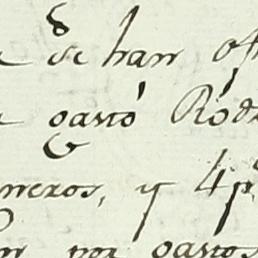 Se han of
gastó Rod
neros, y 4 p
por gastos